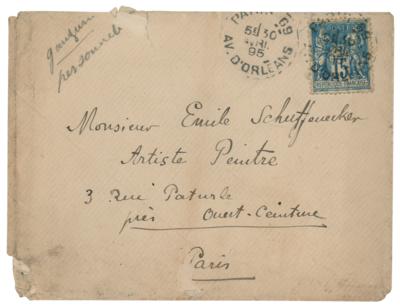 gauguin
personnel
PARIS 69
5E 30
AVRIL
95
AV. D'ORLEANS
15
Monsieur Emile Schuffenecker
Artiste Peintre
3 Rue Paturle
près Ouest-Ceinture
Paris